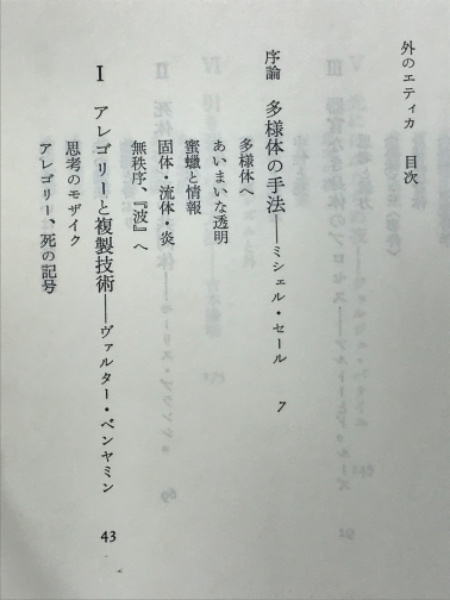 外のエティカ 目次
序論 多様体の手法――ミシェル・セール 7
多様体へ
あいまいな透明
蜜蠟と情報
固体・流体・炎
無秩序、『波』へ
I アレゴリーと複製技術――ヴァルター・ベンヤミン 43
思考のモザイク
アレゴリー、死の記号